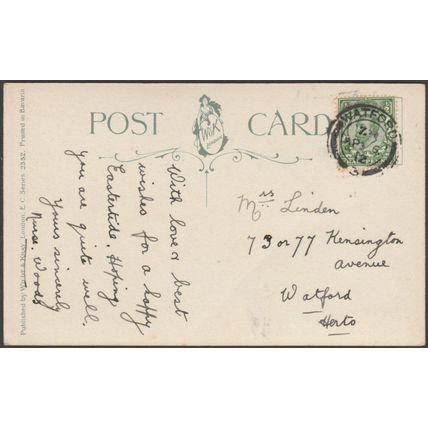 POST CARD
W&K
LONDON
WATFORD
AP
12
3
Published by Wildt & Kray, London, E.C. Series 2352. Printed in Bavaria
With love & best
wishes for a happy
Eastertide, Hoping
you are quite well.
Yours sincerely
Nurse. Woods
Mrs Linden
73 or 77 Kensington
Avenue
Watford
Herts